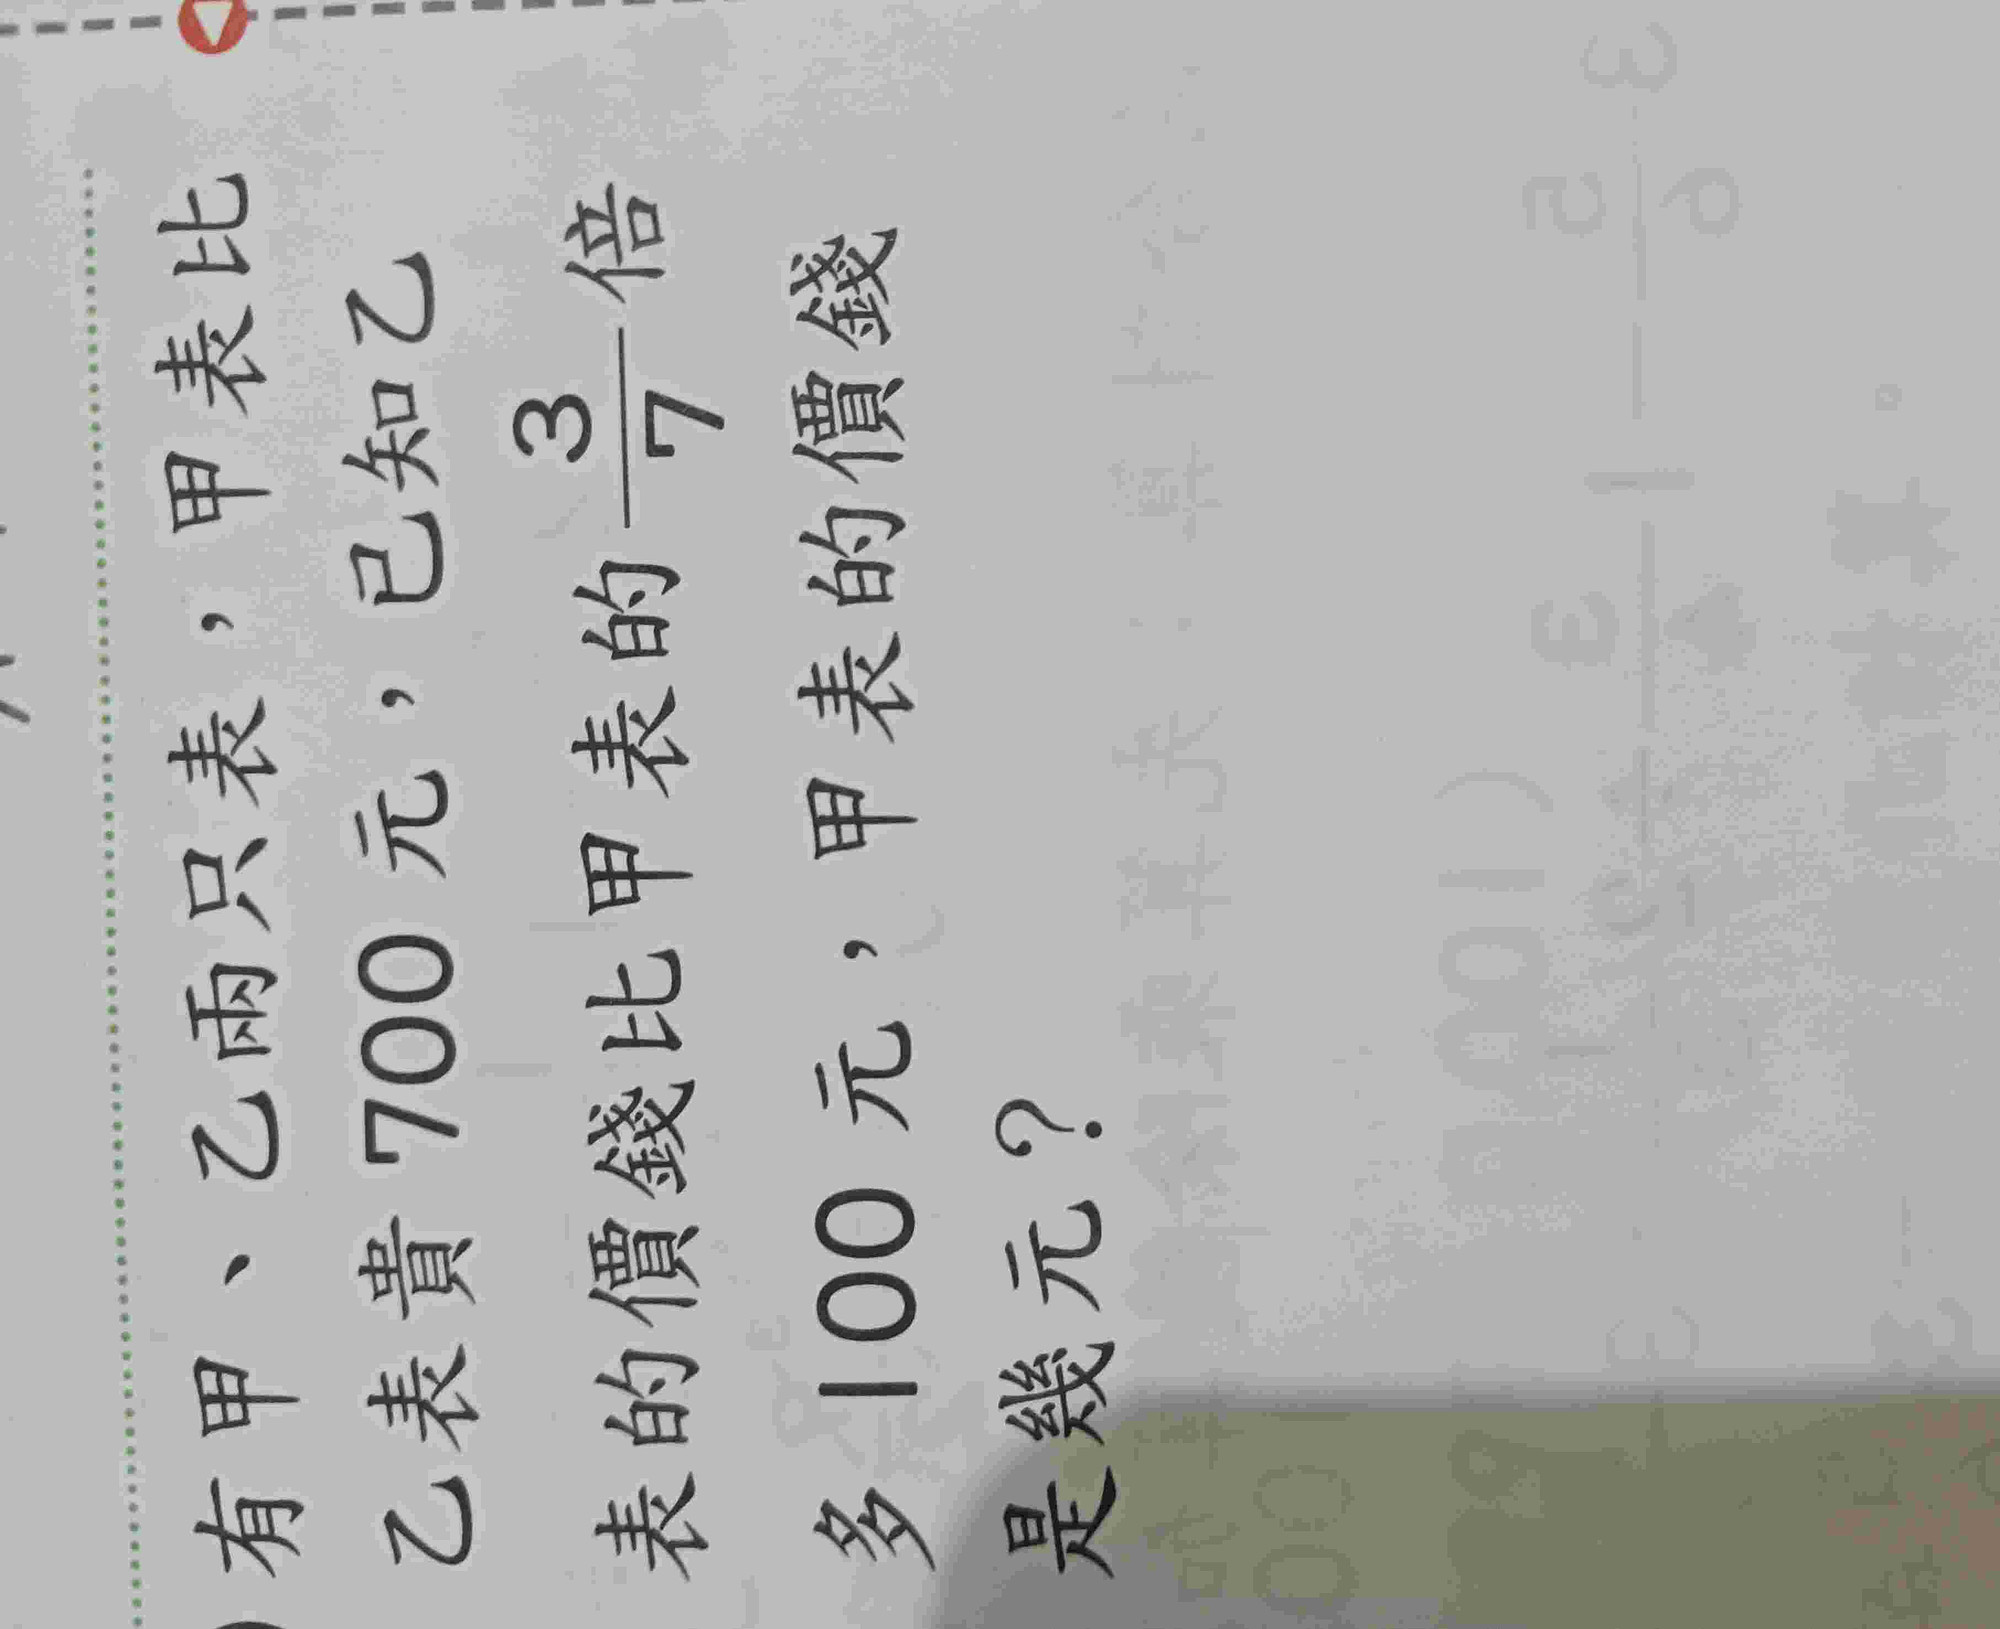 有甲、乙兩只表，甲表比
乙表貴 700 元，已知乙
表的價錢比甲表的 3/7 倍
多 100 元，甲表的價錢
是幾元？